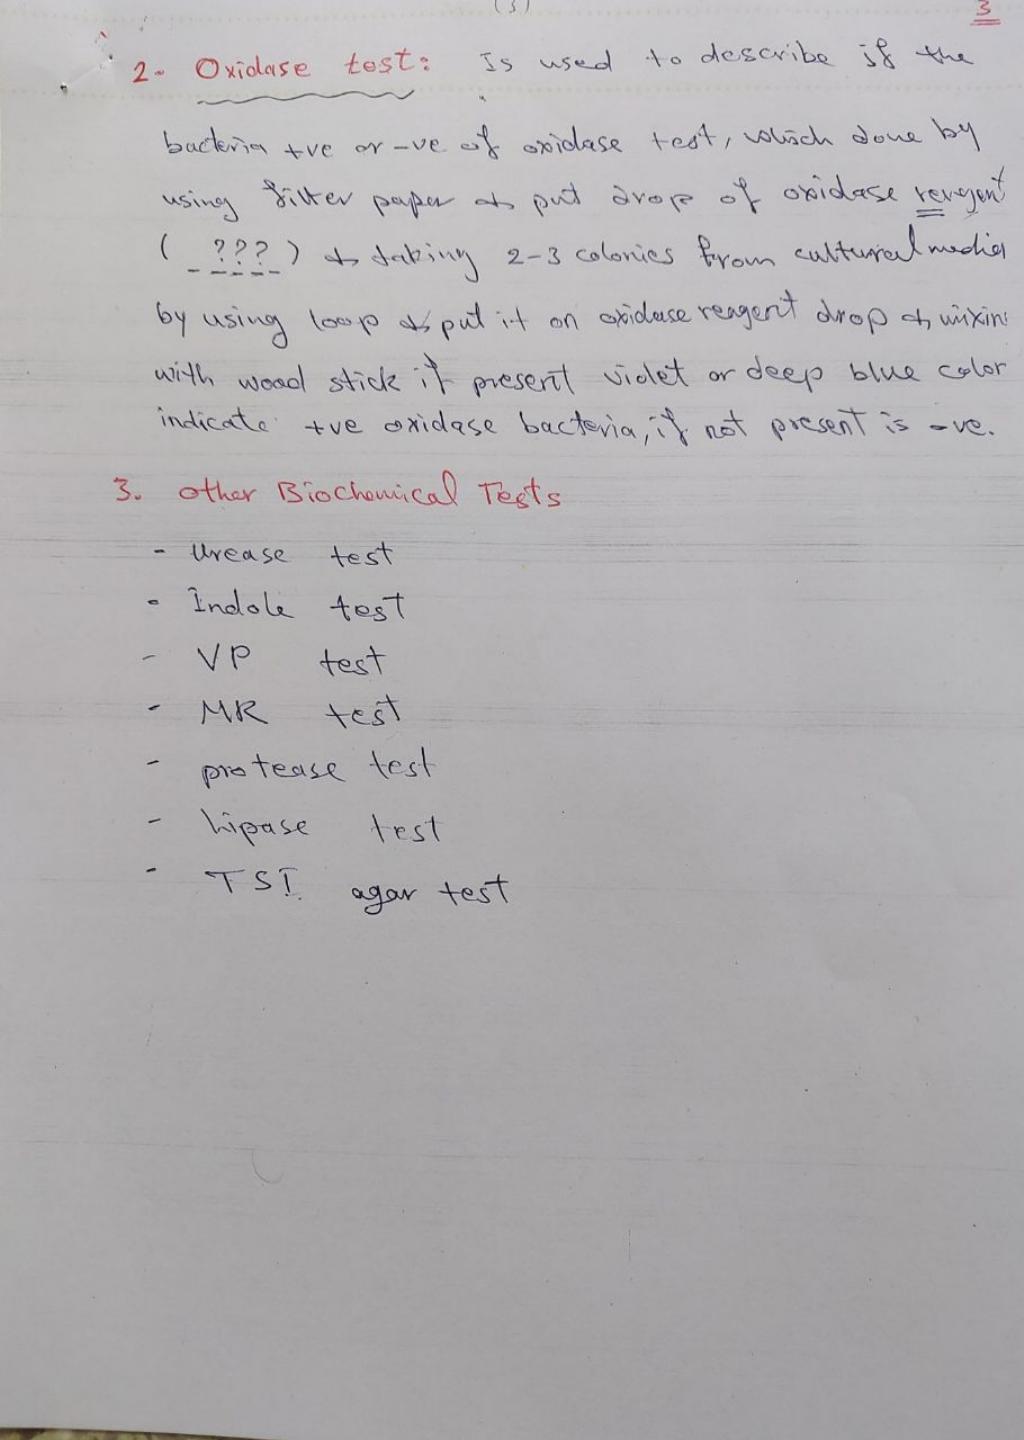 (3)
3
2- Oxidase test: Is used to describe if the
bacteria +ve or -ve of oxidase test, which done by
using filter paper & put drop of oxidase reagent
( ??? ) & taking 2-3 colonies from cultural media
by using loop & put it on oxidase reagent drop & mixin
with wood stick if present violet or deep blue color
indicate +ve oxidase bacteria, if not present is -ve.
3. Other Biochemical Tests
- Urease test
- Indole test
- VP test
- MR test
- protease test
- Lipase test
- TSI agar test